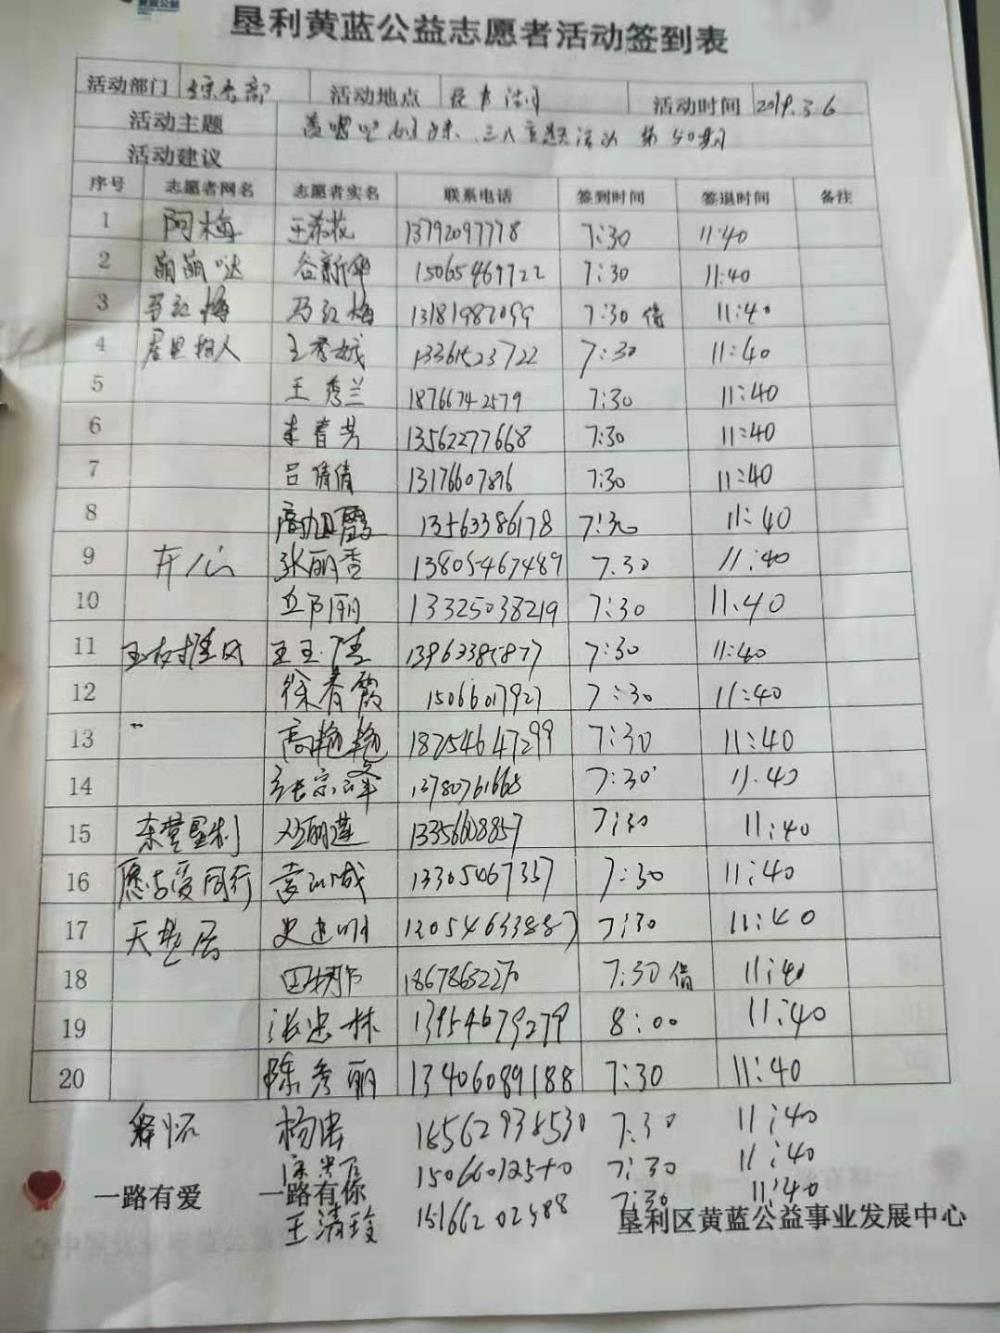 垦利黄蓝公益志愿者活动签到表
活动部门 综合部 活动地点 活动时间 2019.3.6
活动主题 三八主题活动 第50期
活动建议
序号 志愿者网名 志愿者实名 联系电话 签到时间 签退时间 备注
1 阿梅 13792097778 7:30 11:40
2 萌萌哒 谷新华 15065469722 7:30 11:40
3 马红梅 马红梅 13181982099 7:30 借 11:40
4 王秀娥 13361523722 7:30 11:40
5 王秀兰 18766742579 7:30 11:40
6 李春芳 13562277668 7:30 11:40
7 吕倩倩 13176607896 7:30 11:40
8 周旭霞 13563386178 7:30 11:40
9 开心 张丽香 13805467489 7.30 11:40
10 丘阳丽 13325038219 7:30 11.40
11 13963385877 7:30 11:40
12 徐春霞 15066017927 7:30 11:40
13 高艳艳 18254647299 7:30 11:40
14 张宗峰 7:30 11.40
15 东营垦利 冯丽莲 13356608857 7:30 11:40
16 愿与爱同行 13305467337 7:30 11:40
17 7:30 11:40
18 18678632270 7:30 借 11:40
19 张忠林 13954679279 8:00 11:40
20 陈秀丽 13406089188 7:30 11:40
释怀 杨浩 18562938530 7:30 11:40
15066012540 7:30 11:40
一路有爱 一路有你 7:30 11:40
王清玲 15166202588 垦利区黄蓝公益事业发展中心